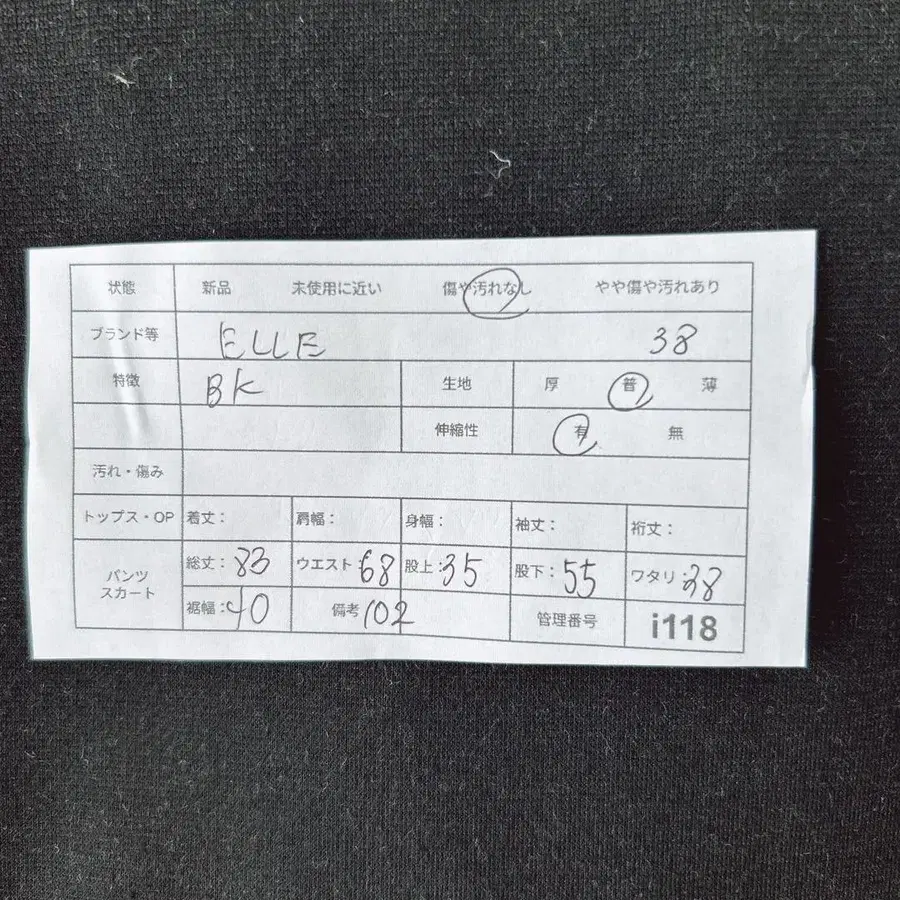 状態 新品 未使用に近い 傷や汚れなし やや傷や汚れあり
ブランド等 ELLE 38
特徴 BK 生地 厚 普 薄
伸縮性 有 無
汚れ・傷み
トップス・OP 着丈: 肩幅: 身幅: 袖丈: 裄丈:
パンツ スカート 総丈:83 ウエスト 68 股上:35 股下:55 ワタリ:38
裾幅:40 備考 102 管理番号 i118